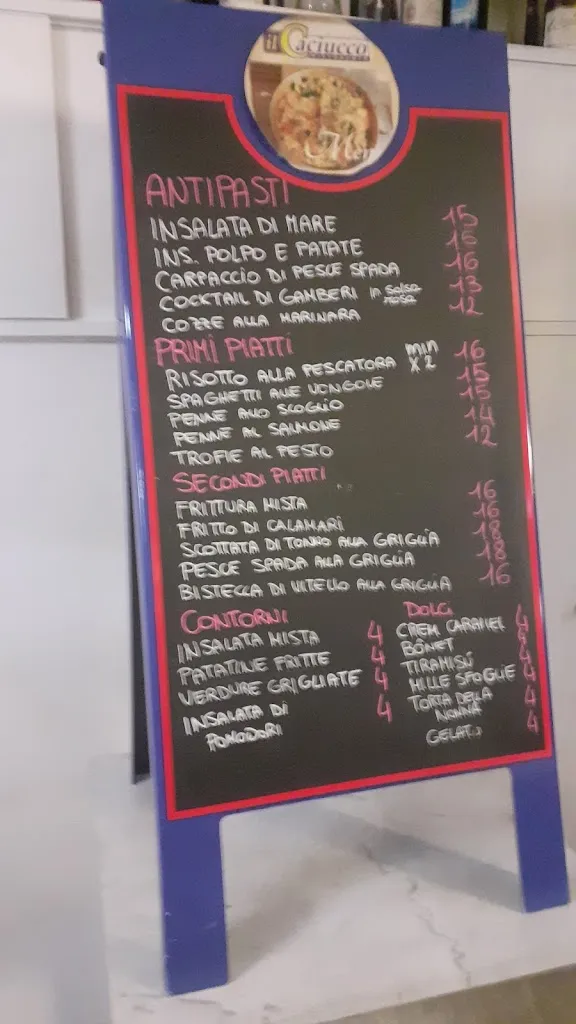 il Caciucco
Menu
ANTIPASTI
INSALATA DI MARE 15
INS. POLPO E PATATE 16
CARPACCIO DI PESCE SPADA 16
COCKTAIL DI GAMBERI in salsa rosa 13
COZZE ALLA MARINARA 12
PRIMI PIATTI
RISOTTO ALLA PESCATORA min x 2 16
SPAGHETTI ALLE VONGOLE 15
PENNE ALLO SCOGLIO 15
PENNE AL SALMONE 14
TROFIE AL PESTO 12
SECONDI PIATTI
FRITTURA MISTA 16
FRITTO DI CALAMARI 16
SCOTTATA DI TONNO ALLA GRIGLIA 18
PESCE SPADA ALLA GRIGLIA 18
BISTECCA DI VITELLO ALLA GRIGLIA 16
CONTORNI
INSALATA MISTA 4
PATATINE FRITTE 4
VERDURE GRIGLIATE 4
INSALATA DI 4
POMODORI
DOLCI
CREM CARAMEL 4
BÔNET 4
TIRAMISÚ 4
MILLE SFOGLIE 4
TORTA DELLA 4
NONNA
GELATO 4